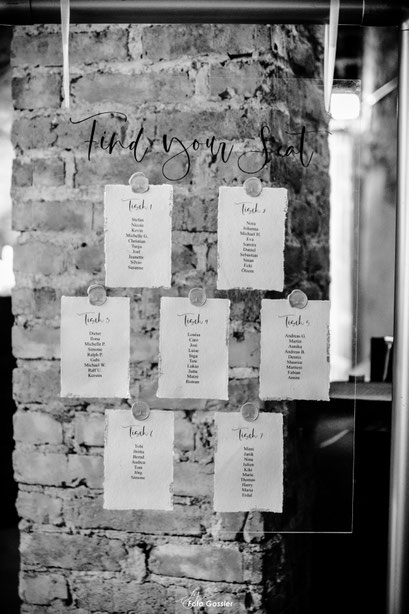 Find your Seat
Tisch 1
Stefan
Nicole
Kevin
Michelle G.
Christian
Tanja
Joel
Jeanette
Silvio
Susanne
Tisch 2
Nora
Johanna
Michael H.
Eva
Sandra
Daniel
Sebastian
Sinan
Ecki
Özlem
Tisch 3
Dieter
Ilona
Michelle P.
Simone
Ralph P.
Gabi
Michael W.
Ralf U.
Kerstin
Tisch 4
Leonie
Caro
Jost
Lucas
Inga
Tom
Lukas
Jaline
Marie
Roman
Tisch 5
Andreas G.
Martin
Annika
Andreas B.
Dennis
Maurice
Marleen
Fabian
Tisch 6
Britta
Bernd
Andrea
Tom
Jörg
Simone
Tisch 7
Mimi
Janik
Nina
Julian
Kiki
Marie
Thomas
Harry
Mario
Erdal
Foto Gassler